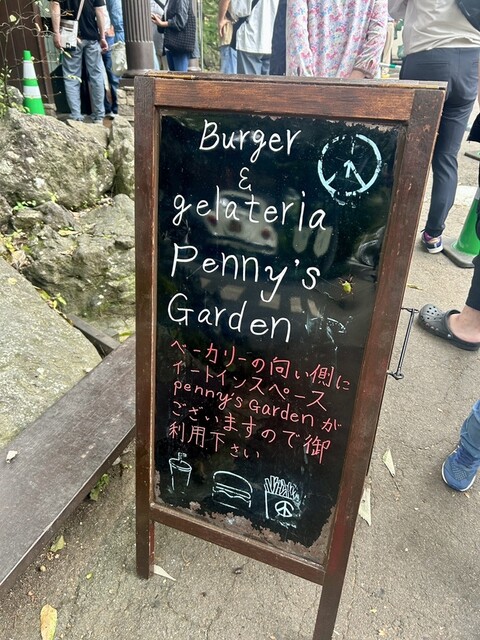 Burger
&
gelateria
Penny's
Garden
ベーカリーの向い側に
イートインスペース
penny's Gardenが
ございますので御
利用下さい